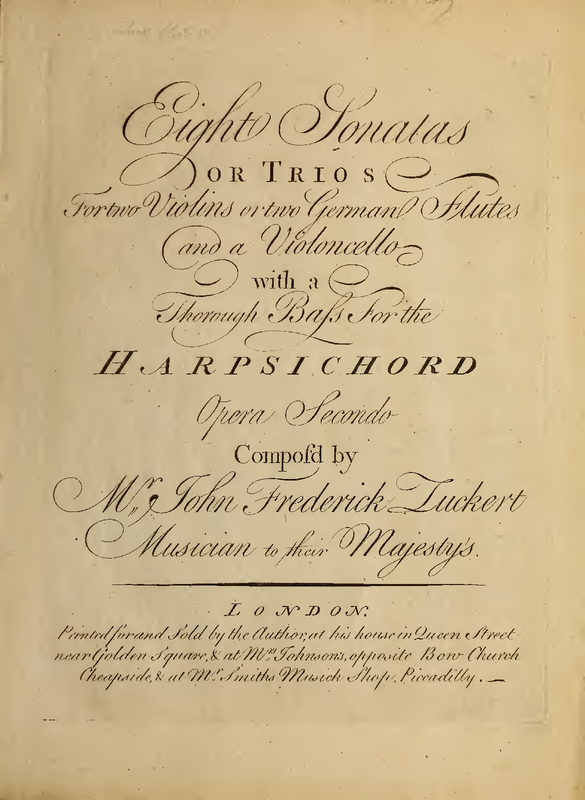 Eight Sonatas
OR TRIOS
For two Violins or two German Flutes
and a Violoncello
with a
Thorough Baſs For the
HARPSICHORD
Opera Secondo
Compoſ'd by
Mr. John Frederick Zuckert
Musician to their Majesty's.
LONDON.
Printed for and Sold by the Author, at his house in Queen Street
near Golden Square, & at Mrs. Johnson's, opposite Bow Church
Cheapside, & at Mr. Smiths Musick Shop, Piccadilly.